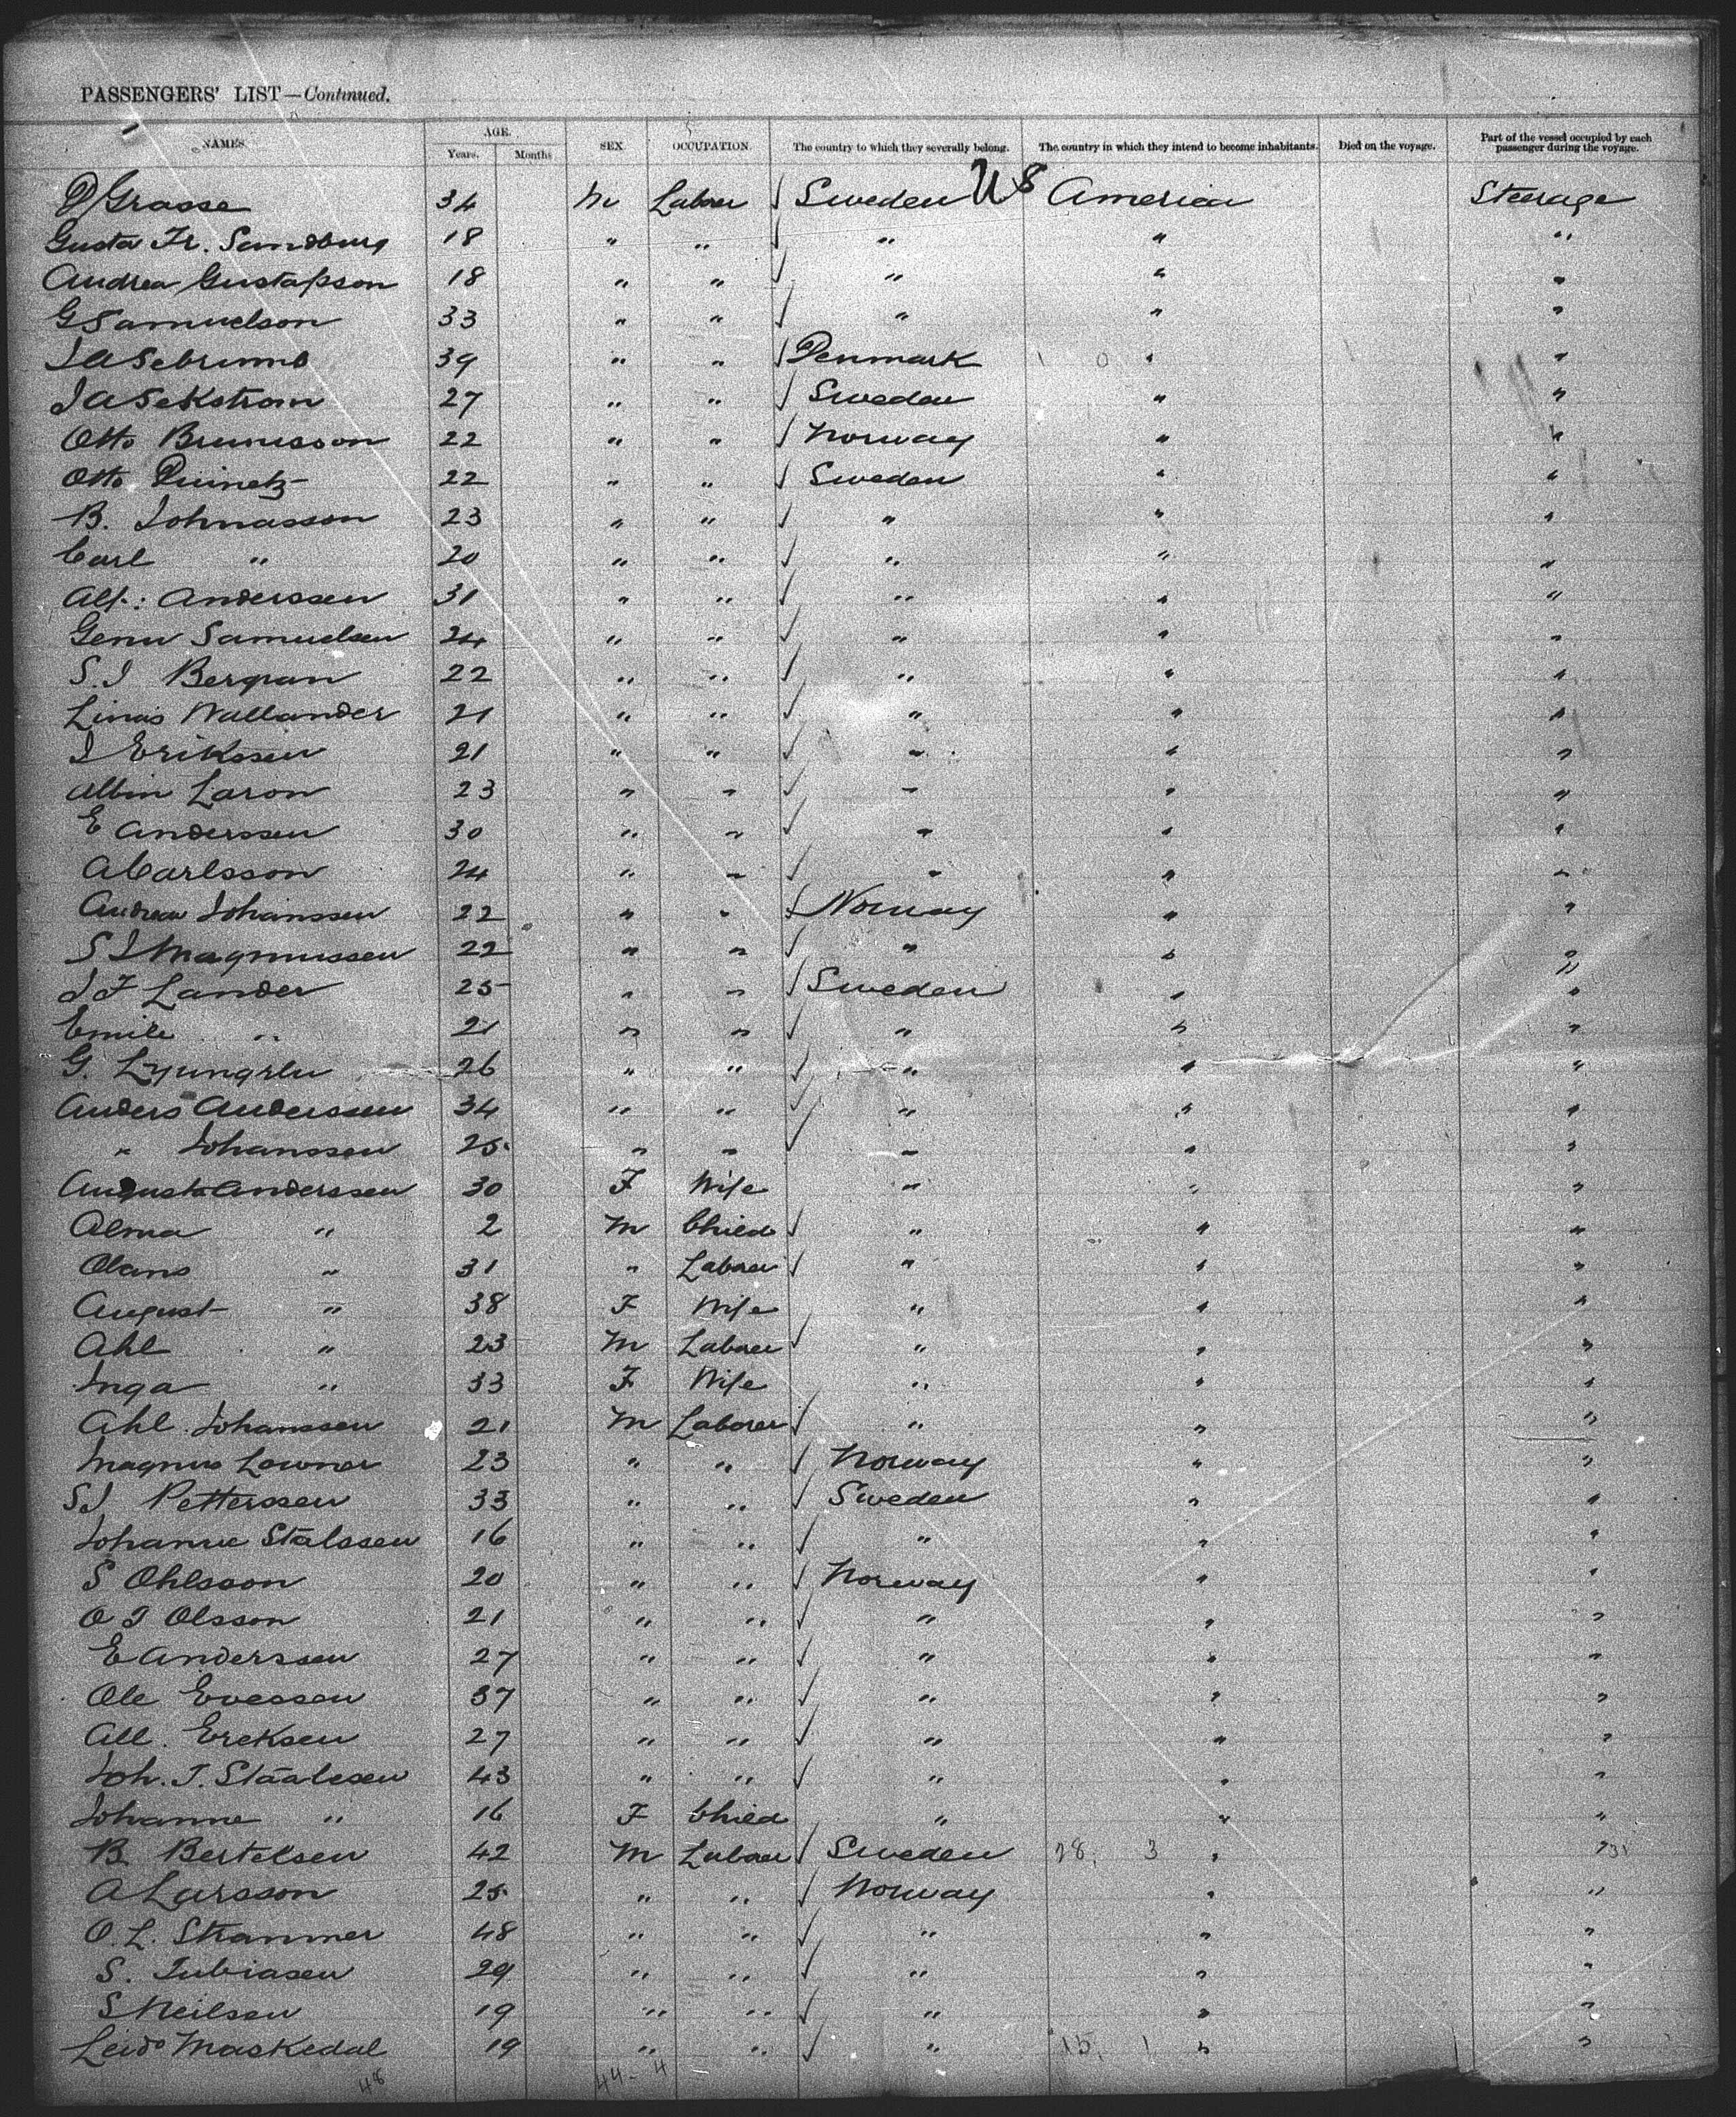 PASSENGERS' LIST—Continued.
NAMES. AGE. SEX OCCUPATION The country to which they severally belong. The country in which they intend to become inhabitants. Died on the voyage. Part of the vessel occupied by each passenger during the voyage.
Years. Months
D Grasse 34 M Laborer √ Sweden US America Steerage
Gusta Fr. Sandburg 18 " " √ " " "
Andrea Gustafsson 18 " " √ " " "
G Samuelson 33 " " √ " " "
39 " " √ Denmark " "
J A Sekstrom 27 " " √ Sweden " "
Otto Brunisson 22 " " √ Norway " "
Otto 22 " " √ Sweden " "
B. Johnasson 23 " " √ " " "
Carl " 20 " " √ " " "
Alf: Anderssen 31 " " √ " " "
Samuelsen 24 " " √ " " "
S. J Bergman 22 " " √ " " "
Linus Wallander 21 " " √ " " "
J Erikssen 21 " " √ " " "
Albin Laron 23 " " √ " " "
E Anderssen 30 " " √ " " "
A Carlsson 24 " " √ " " "
Andrew Johanssen 22 " " √ Norway " "
S J Magnussen 22 " " √ " " "
J F Lander 25 " " √ Sweden " "
Emile " 21 " " √ " " "
G. 26 " " √ " " "
Anders Anderssen 34 " " √ " " "
" Johanssen 25 " " √ " " "
Augusta Anderssen 30 F Wife " " "
Alma " 2 M Child √ " " "
Olans " 31 " Laborer √ " " "
August " 38 F Wife " " "
Ahl " 23 M Laborer √ " " "
Inga " 33 F Wife " " "
Ahl Johanssen 21 M Laborer √ " " "
Magnus Lowner 23 " " √ Norway " "
S J Petterssen 33 " " √ Sweden " "
Johanne Stalssen 16 " " √ " " "
S Ohlsson 20 " " √ Norway " "
O J Olsson 21 " " √ " " "
E Anderssen 27 " " √ " " "
Ole Evessen 37 " " √ " " "
All. Ereksen 27 " " √ " " "
Joh. J. Staalesen 43 " " √ " " "
Johanne " 16 F Child " " "
B Bertelsen 42 M Laborer √ Sweden 28, 3 " "
A Larsson 25 " " √ Norway " "
O. L. Strammer 48 " " √ " " "
S. Tubiasen 29 " " √ " " "
S Neilsen 19 " " √ " " "
Leids Maskedal 19 " " √ " 15, 1 " "
48 44-4